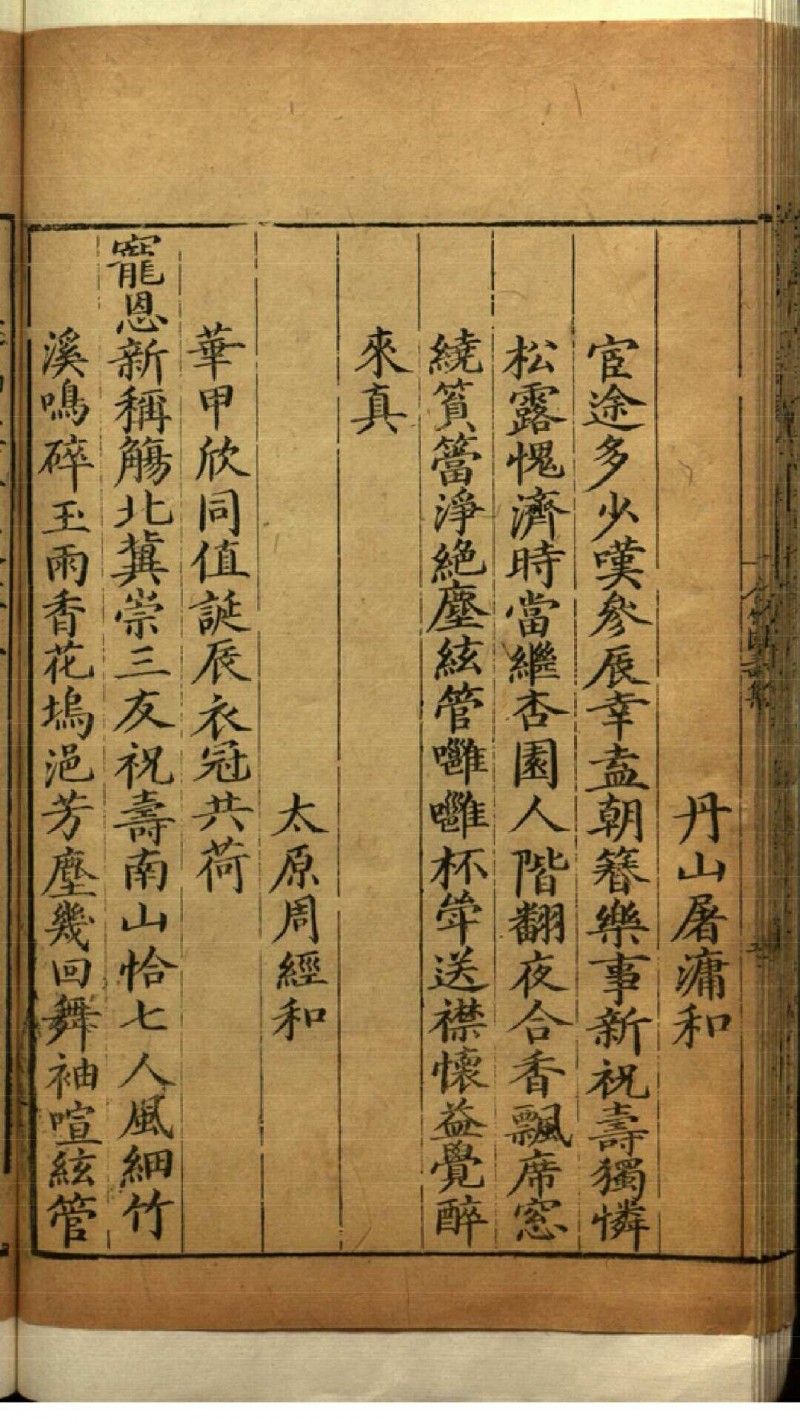 丹山屠滽和
宦途多少嘆參辰幸盍朝簪樂事新祝壽獨憐
松露愧濟時當繼杏園人階翻夜合香飄席窓
繞篔簹淨絶塵絃管噰噰杯斝送襟懷益覺醉
來真
太原周經和
華甲欣同值誕辰衣冠共荷
寵恩新稱觴北冀崇三友祝壽南山恰七人風細竹
溪鳴碎玉雨香花塢浥芳塵幾回舞袖喧絃管